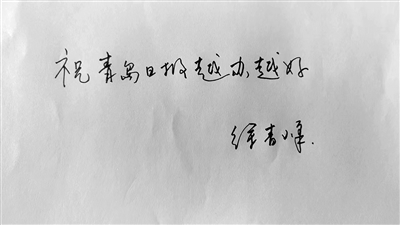 祝青岛日报越办越好
徐青峰.